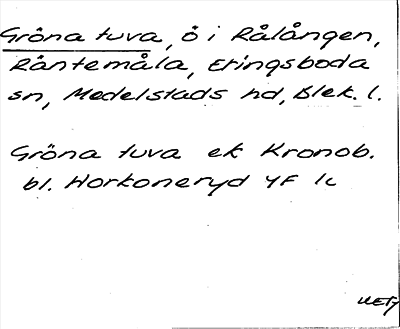 Gröna tuva, ö i Rålången,
Räntemåla, Eringsboda
sn, Medelstads hd, Blek. l.
Gröna tuva ek Kronob.
bl. Horkoneryd 4F 1c